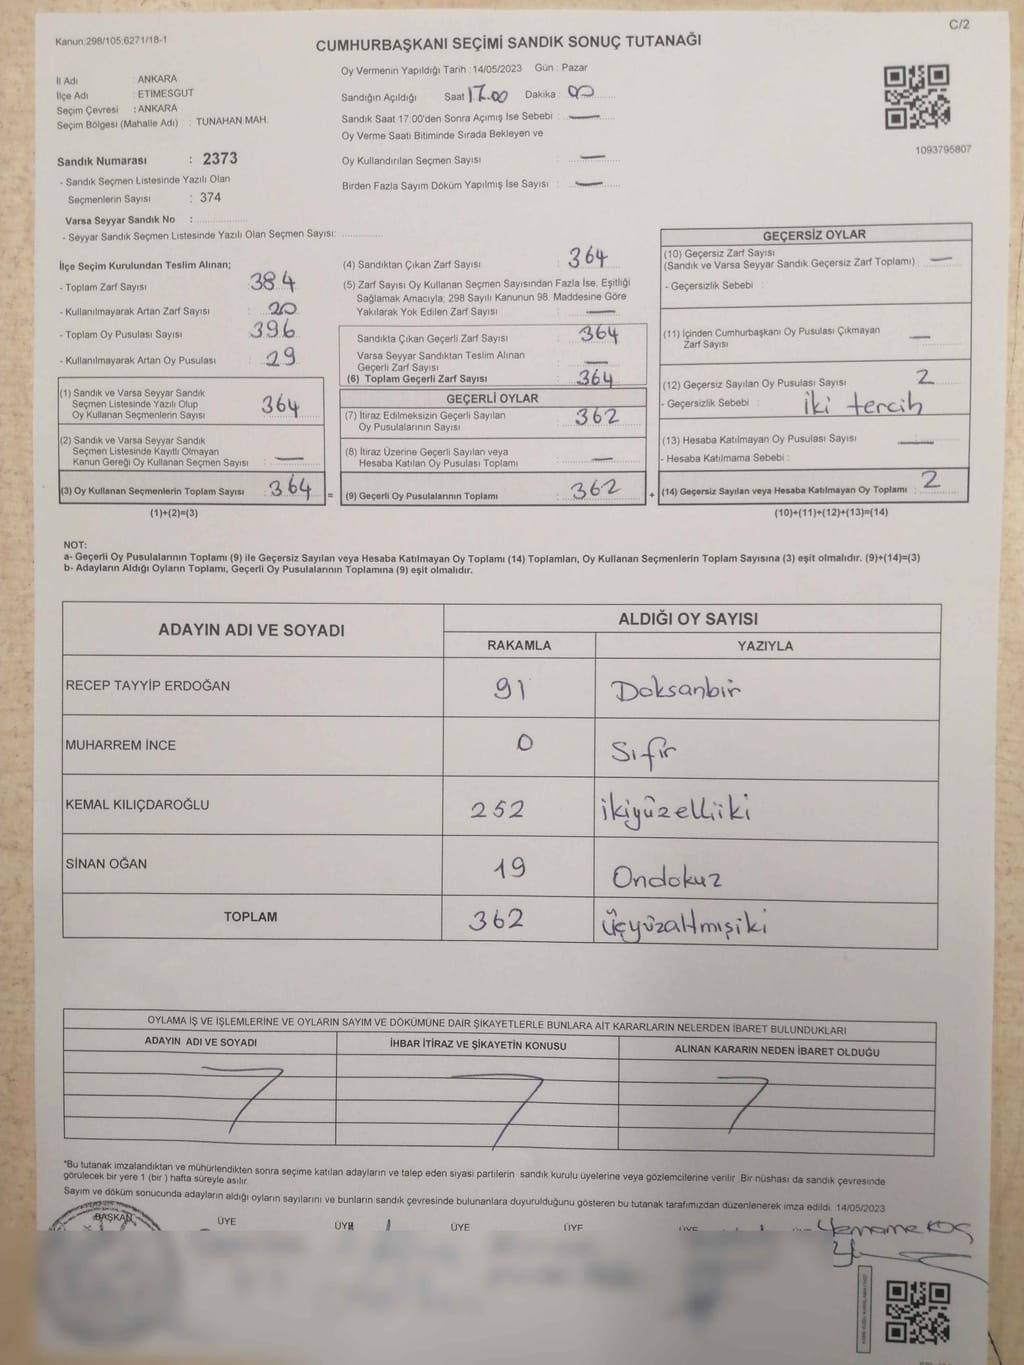 Kanun:298/105;6271/18-1
C/2
CUMHURBAŞKANI SEÇİMİ SANDIK SONUÇ TUTANAĞI
İl Adı : ANKARA
İlçe Adı : ETİMESGUT
Seçim Çevresi : ANKARA
Seçim Bölgesi (Mahalle Adı) : TUNAHAN MAH.
Sandık Numarası : 2373
- Sandık Seçmen Listesinde Yazılı Olan
Seçmenlerin Sayısı : 374
Varsa Seyyar Sandık No :
- Seyyar Sandık Seçmen Listesinde Yazılı Olan Seçmen Sayısı:
Oy Vermenin Yapıldığı Tarih : 14/05/2023 Gün : Pazar
Sandığın Açıldığı Saat 17.00 Dakika : 00
Sandık Saat 17:00'den Sonra Açımış İse Sebebi : —
Oy Verme Saati Bitiminde Sırada Bekleyen ve
Oy Kullandırılan Seçmen Sayısı : —
Birden Fazla Sayım Döküm Yapılmış İse Sayısı : —
1093795807
İlçe Seçim Kurulundan Teslim Alınan;
- Toplam Zarf Sayısı : 384
- Kullanılmayarak Artan Zarf Sayısı : 20
- Toplam Oy Pusulası Sayısı : 396
- Kullanılmayarak Artan Oy Pusulası : 29
(1) Sandık ve Varsa Seyyar Sandık
Seçmen Listesinde Yazılı Olup
Oy Kullanan Seçmenlerin Sayısı : 364
(2) Sandık ve Varsa Seyyar Sandık
Seçmen Listesinde Kayıtlı Olmayan
Kanun Gereği Oy Kullanan Seçmen Sayısı : —
(3) Oy Kullanan Seçmenlerin Toplam Sayısı : 364
(1)+(2)=(3)
=
(4) Sandıktan Çıkan Zarf Sayısı : 364
(5) Zarf Sayısı Oy Kullanan Seçmen Sayısından Fazla İse, Eşitliği
Sağlamak Amacıyla; 298 Sayılı Kanunun 98. Maddesine Göre
Yakılarak Yok Edilen Zarf Sayısı : —
Sandıkta Çıkan Geçerli Zarf Sayısı : 364
Varsa Seyyar Sandıktan Teslim Alınan
Geçerli Zarf Sayısı : —
(6) Toplam Geçerli Zarf Sayısı : 364
GEÇERLİ OYLAR
(7) İtiraz Edilmeksizin Geçerli Sayılan
Oy Pusulalarının Sayısı : 362
(8) İtiraz Üzerine Geçerli Sayılan veya
Hesaba Katılan Oy Pusulası Toplamı : —
(9) Geçerli Oy Pusulalarının Toplamı : 362
+
GEÇERSİZ OYLAR
(10) Geçersiz Zarf Sayısı
(Sandık ve Varsa Seyyar Sandık Geçersiz Zarf Toplamı) : —
- Geçersizlik Sebebi :
(11) İçinden Cumhurbaşkanı Oy Pusulası Çıkmayan
Zarf Sayısı : —
(12) Geçersiz Sayılan Oy Pusulası Sayısı : 2
- Geçersizlik Sebebi : iki tercih
(13) Hesaba Katılmayan Oy Pusulası Sayısı : —
- Hesaba Katılmama Sebebi :
(14) Geçersiz Sayılan veya Hesaba Katılmayan Oy Toplamı : 2
(10)+(11)+(12)+(13)=(14)
NOT:
a- Geçerli Oy Pusulalarının Toplamı (9) ile Geçersiz Sayılan veya Hesaba Katılmayan Oy Toplamı (14) Toplamları, Oy Kullanan Seçmenlerin Toplam Sayısına (3) eşit olmalıdır. (9)+(14)=(3)
b- Adayların Aldığı Oyların Toplamı, Geçerli Oy Pusulalarının Toplamına (9) eşit olmalıdır.
ADAYIN ADI VE SOYADI
ALDIĞI OY SAYISI
RAKAMLA YAZIYLA
RECEP TAYYİP ERDOĞAN 91 Doksanbir
MUHARREM İNCE 0 Sıfır
KEMAL KILIÇDAROĞLU 252 ikiyüzelliiki
SİNAN OĞAN 19 Ondokuz
TOPLAM 362 Üçyüzaltmışiki
OYLAMA İŞ VE İŞLEMLERİNE VE OYLARIN SAYIM VE DÖKÜMÜNE DAİR ŞİKAYETLERLE BUNLARA AİT KARARLARIN NELERDEN İBARET BULUNDUKLARI
ADAYIN ADI VE SOYADI İHBAR İTİRAZ VE ŞİKAYETİN KONUSU ALINAN KARARIN NEDEN İBARET OLDUĞU
*Bu tutanak imzalandıktan ve mühürlendikten sonra seçime katılan adayların ve talep eden siyasi partilerin sandık kurulu üyelerine veya gözlemcilerine verilir. Bir nüshası da sandık çevresinde
görülecek bir yere 1 (bir) hafta süreyle asılır.
Sayım ve döküm sonucunda adayların aldığı oyların sayılarını ve bunların sandık çevresinde bulunanlara duyurulduğunu gösteren bu tutanak tarafımızdan düzenlenerek imza edildi. 14/05/2023
BAŞKAN ÜYE ÜYE ÜYE ÜYE ÜYE